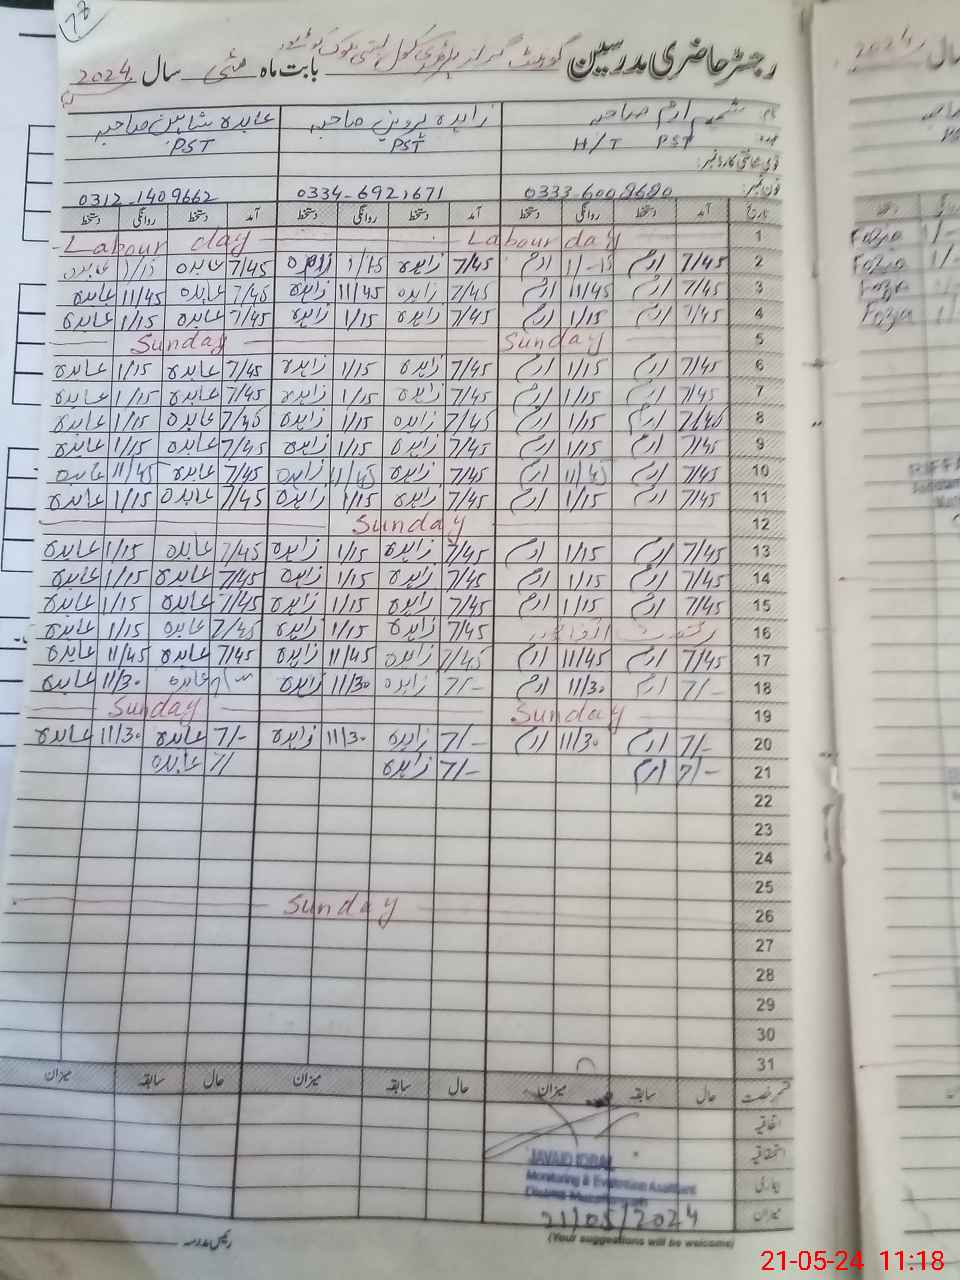 78
رجسٹر حاضری مدرسین گورنمنٹ گرلز پرائمری سکول بابت ماہ مئی سال 2024
نام شمیم ارم صاحبہ زاہدہ پروین صاحبہ عابدہ شاہین صاحبہ
عہدہ H/T PST PST PST
قومی شناختی کارڈ نمبر:
فون نمبر: 0333-6008680 0334-6921671 0312-1409662
تاریخ آمد دستخط روانگی دستخط آمد دستخط روانگی دستخط آمد دستخط روانگی دستخط
1 Labour day Labour day
2 7/45 ارم 1/-15 ارم 7/45 زاہدہ 1/15 زاہدہ 7/45 عابدہ 1/15 عابدہ
3 7/45 ارم 11/45 ارم 7/45 زاہدہ 11/45 زاہدہ 7/45 عابدہ 11/45 عابدہ
4 7/45 ارم 1/15 ارم 7/45 زاہدہ 1/15 زاہدہ 7/45 عابدہ 1/15 عابدہ
5 Sunday Sunday
6 7/45 ارم 1/15 ارم 7/45 زاہدہ 1/15 زاہدہ 7/45 عابدہ 1/15 عابدہ
7 7/45 ارم 1/15 ارم 7/45 زاہدہ 1/15 زاہدہ 7/45 عابدہ 1/15 عابدہ
8 7/45 ارم 1/15 ارم 7/45 زاہدہ 1/15 زاہدہ 7/45 عابدہ 1/15 عابدہ
9 7/45 ارم 1/15 ارم 7/45 زاہدہ 1/15 زاہدہ 7/45 عابدہ 1/15 عابدہ
10 7/45 ارم 11/45 ارم 7/45 زاہدہ 11/45 زاہدہ 7/45 عابدہ 11/45 عابدہ
11 7/45 ارم 1/15 ارم 7/45 زاہدہ 1/15 زاہدہ 7/45 عابدہ 1/15 عابدہ
12 Sunday
13 7/45 ارم 1/15 ارم 7/45 زاہدہ 1/15 زاہدہ 7/45 عابدہ 1/15 عابدہ
14 7/45 ارم 1/15 ارم 7/45 زاہدہ 1/15 زاہدہ 7/45 عابدہ 1/15 عابدہ
15 7/45 ارم 1/15 ارم 7/45 زاہدہ 1/15 زاہدہ 7/45 عابدہ 1/15 عابدہ
16 رخصت اتفاقیہ 7/45 زاہدہ 1/15 زاہدہ 7/45 عابدہ 1/15 عابدہ
17 7/45 ارم 11/45 ارم 7/45 زاہدہ 11/45 زاہدہ 7/45 عابدہ 11/45 عابدہ
18 7/- ارم 11/30 ارم 7/- زاہدہ 11/30 زاہدہ 7/- عابدہ 11/30 عابدہ
19 Sunday Sunday
20 7/- ارم 11/30 ارم 7/- زاہدہ 11/30 زاہدہ 7/- عابدہ 11/30 عابدہ
21 7/- ارم 7/- زاہدہ 7/ عابدہ
22
23
24
25
26 Sunday
27
28
29
30
31
قسم رخصت حال سابقہ میزان حال سابقہ میزان حال سابقہ میزان
اتفاقیہ
استحقاقیہ
بیماری
میزان
JAVAID IQBAL
Monitoring & Evaluation Assistant
District Muzaffargarh
21/05/2024
(Your suggestions will be welcome)
رئیس مدرسہ
2024 سال
Fozia 1/-
Fozia 1/-
Fozia
Fozia
21-05-24 11:18